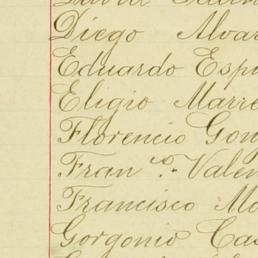 Diego Alvar
Eduardo Esp
Eligio Marre
Florencio Gon
Fran co. Valen
Francisco Mo
Gorgonio Cas